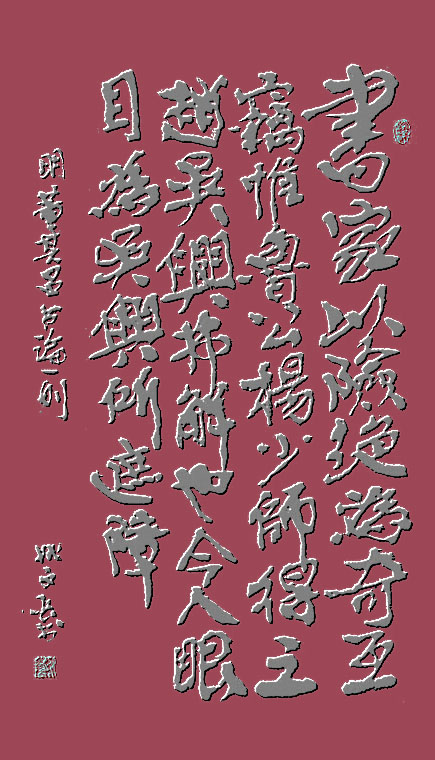 書家以險絶為奇此
竅惟魯公楊少師得之
趙吳興弗解也今人眼
目為吳興所遮障
明董其昌書論一則